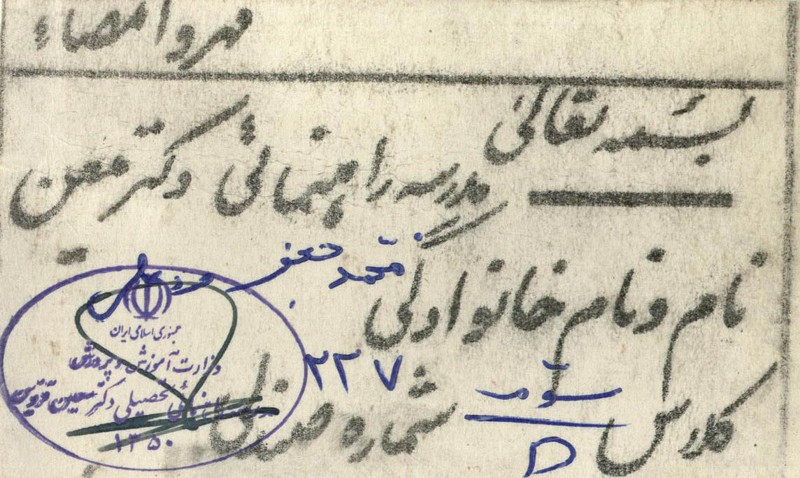 مهر و امضاء
بسمه تعالی
مدرسه راهنمائی دکتر معین
نام و نام خانوادگی محمد جعفر
کلاس سوم D شماره صندلی ۲۲۷
جمهوری اسلامی ایران
وزارت آموزش و پرورش
راهنمائی تحصیلی دکتر معین قزوین
۱۳۵۰